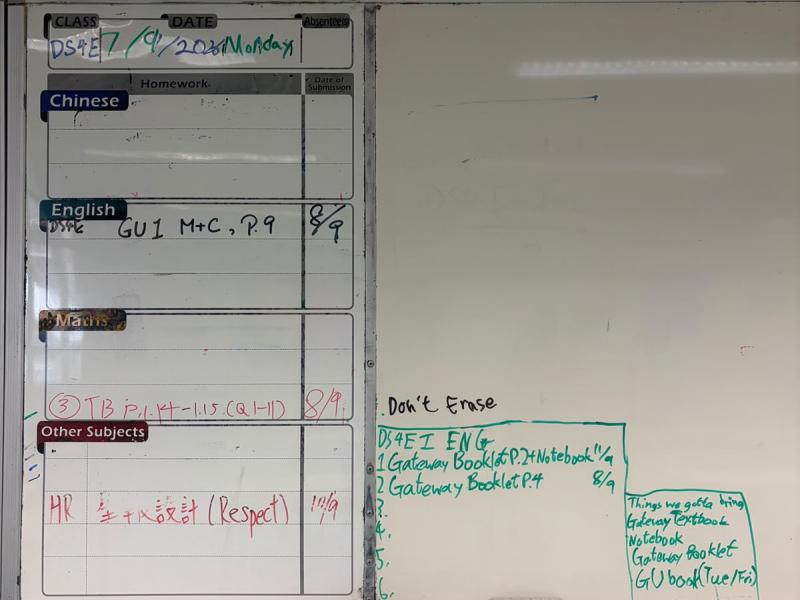 CLASS DATE Absentees
DS4E 7/9/2026 Monday
Homework Date of Submission
Chinese
English
DS4E GU1 M+C, P.9 8/9
Maths
③ TB P.1.14-1.15 (Q1-11) 8/9
Other Subjects
HR 設計 (Respect) 11/9
Don't Erase
DS4E I ENG
1 Gateway Booklet P.2+Notebook 11/9
2 Gateway Booklet P.4 8/9
3.
4.
5.
6.
Things we gotta bring
Gateway Textbook
Notebook
Gateway Booklet
GU book (Tue/Fri)